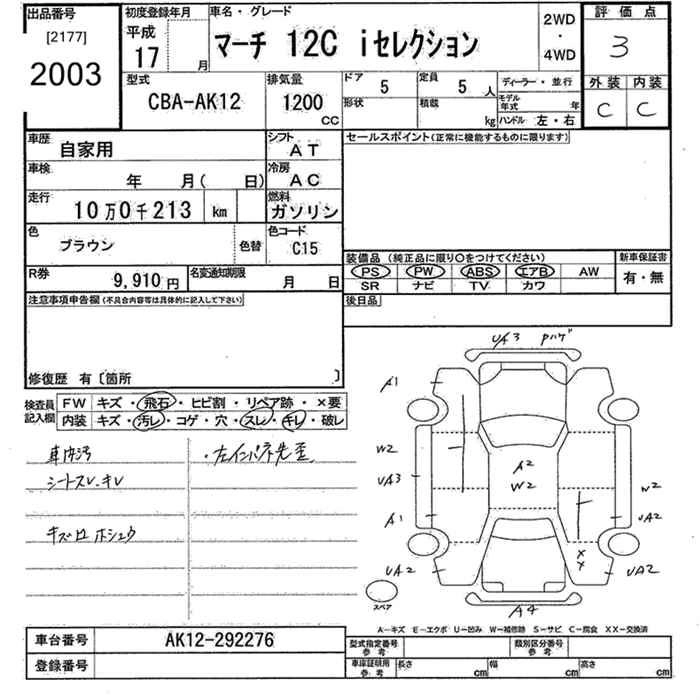 出品番号
[2177]
2003
初度登録年月
平成
17 月
車名・グレード
マーチ 12C iセレクション
2WD
・
4WD
評価点
3
型式
CBA-AK12
排気量
1200
CC
ドア
5
定員
5 人
形状
積載
kg
ディーラー・並行
モデル年式 年
ハンドル 左・右
外装 内装
C C
車歴
自家用
シフト
AT
車検
年 月( 日)
冷房
AC
走行
10万0千213 km
燃料
ガソリン
色
ブラウン
色替
色コード
C15
R券
9,910円
名変通知期限
月 日
セールスポイント(正常に機能するものに限ります)
装備品(純正品に限り○をつけてください)
PS PW ABS エアB AW
SR ナビ TV カワ
新車保証書
有・無
後日品
注意事項申告欄(不具合内容等は具体的に記入して下さい)
修復歴 有〔箇所 〕
検査員記入欄
FW キズ・飛石・ヒビ割・リペア跡・×要
内装 キズ・汚レ・コゲ・穴・スレ・キレ・破レ
車内汚
シートスレ・キレ
キズロ ホシュウ
UA3 Pハゲ
A1
W2
UA3
A1
UA2
A2
W2
W2
UA2
XX
UA2
A4
スペア
A－キズ E－エクボ U－凹み W－補修跡 S－サビ C－腐食 XX－交換済
車台番号 AK12-292276
登録番号
型式指定番号 参考
類別区分番号 参考
車庫証明用 参考
長さ cm 幅 cm 高さ cm